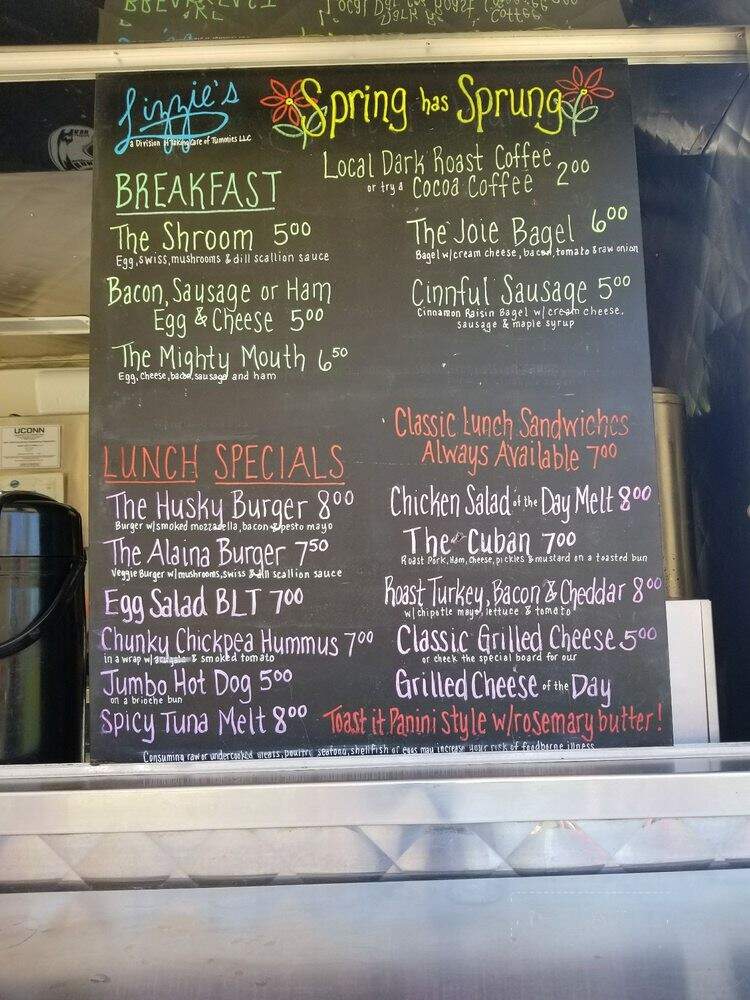 Lizzie's
a Division of Taking Care of Tummies LLC
Spring has Sprung
Local Dark Roast Coffee
or try a Cocoa Coffee 2.00
BREAKFAST
The Shroom 5.00
Egg, swiss, mushrooms & dill scallion sauce
Bacon, Sausage or Ham
Egg & Cheese 5.00
The Mighty Mouth 6.50
Egg, cheese, bacon, sausage and ham
The Joie Bagel 6.00
Bagel w/cream cheese, bacon, tomato & raw onion
Cinnful Sausage 5.00
Cinnamon Raisin Bagel w/ cream cheese.
sausage & maple syrup
UCONN
LUNCH SPECIALS
The Husky Burger 8.00
Burger w/smoked mozzarella, bacon & pesto mayo
The Alaina Burger 7.50
Veggie Burger w/mushrooms, swiss & dill scallion sauce
Egg Salad BLT 7.00
Chunky Chickpea Hummus 7.00
in a wrap w/ & smoked tomato
Jumbo Hot Dog 5.00
on a brioche bun
Spicy Tuna Melt 8.00
Classic Lunch Sandwiches
Always Available 7.00
Chicken Salad of the Day Melt 8.00
The Cuban 7.00
Roast Pork, Ham, Cheese, pickles & mustard on a toasted bun
Roast Turkey, Bacon & Cheddar 8.00
w/chipotle mayo, lettuce & tomato
Classic Grilled Cheese 5.00
or check the special board for our
Grilled Cheese of the Day
Toast it Panini style w/rosemary butter!
Consuming raw or undercooked meats, poultry, seafood, shellfish or eggs may increase your risk of foodborne illness